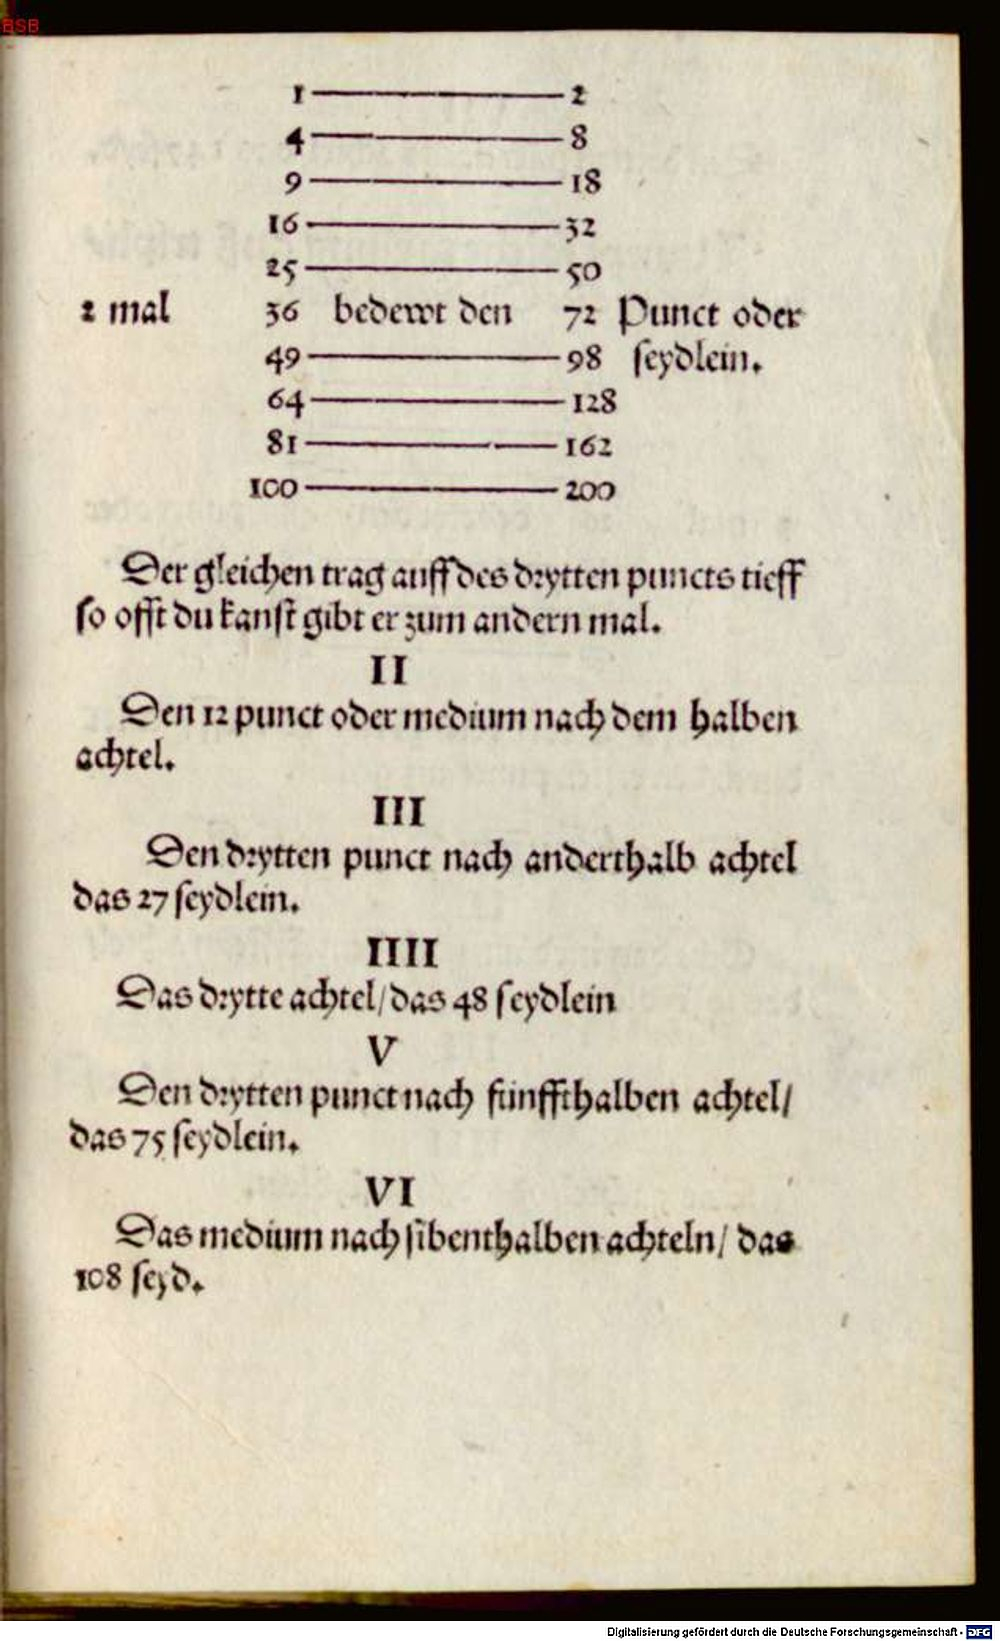 BSB
1 2
4 8
9 18
16 32
25 50
2 mal 36 bedewt den 72 Punct oder
49 98 seydlein.
64 128
81 162
100 200
Der gleichen trag auff des drytten puncts tieff
so offt du kanst gibt er zum andern mal.
II
Den 12 punct oder medium nach dem halben
achtel.
III
Den drytten punct nach anderthalb achtel
das 27 seydlein.
IIII
Das drytte achtel/das 48 seydlein
V
Den drytten punct nach fünffthalben achtel/
das 75 seydlein.
VI
Das medium nach sibenthalben achteln/ das
108 seyd.
Digitalisierung gefördert durch die Deutsche Forschungsgemeinschaft - DFG